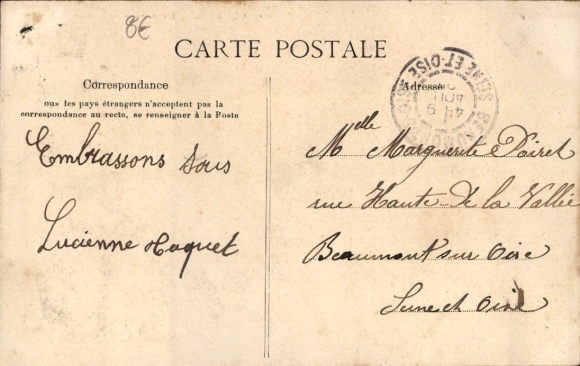 8€
CARTE POSTALE
Correspondance
ous les pays étrangers n'acceptent pas la
correspondance au recto, se renseigner à la Poste
Embrassons Sous
Lucienne Haquet
Adresse
SEINE-ET-OISE
Melle Marguerite Poiret
rue Haute de la Vallée
Beaumont sur Oise
Seine et Oise